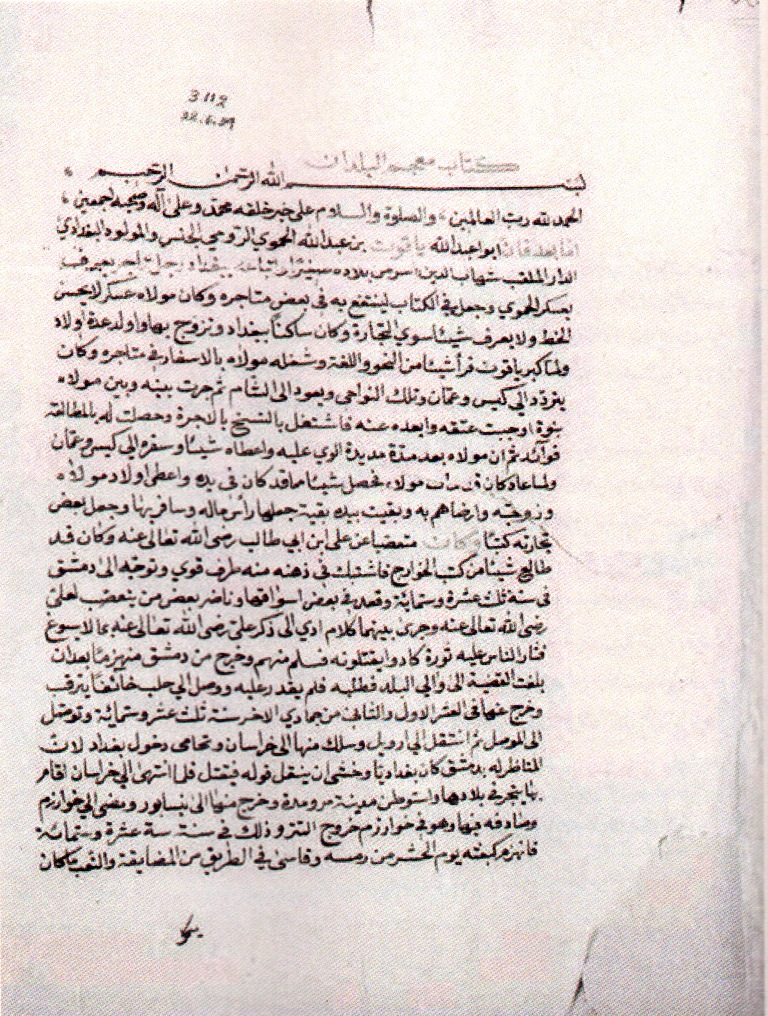 3112
22.6.29
كتاب معجم البلدان
بسم الله الرحمن الرحيم
الحمد لله رب العالمين، والصلوة والسلام على خير خلقه محمد وعلى آله وصحبه اجمعين،
اما بعد فان ابو عبد الله ياقوت بن عبد الله الحموي الرومي الجنس والمولود البغدادي
الدار الملقب شهاب الدين اسر من بلاده صغيرا وابتاعه ببغداد رجل تاجر يعرف
بعسكر الحموي وجعله في الكتاب لينتفع به في بعض متاجره وكان مولاه عسكر لا يحسن
الخط ولا يعرف شيئا سوي التجارة وكان ساكنا ببغداد وتزوج بها واولد عدة اولاد
ولما كبر ياقوت قرأ شيئا من النحو واللغة وشغله مولاه بالاسفار في متاجره وكان
يتردد الي كيس وعمان وتلك النواحى ويعود الى الشام ثم جرت بينه وبين مولاه
نبوة اوجبت عتقه وابعده عنه فاشتغل بالنسخ بالاجرة وحصلت له بالمطالعة
فوآئد ثم ان مولاه بعد مدة مديدة الوي عليه واعطاه شيئا وسفره الي كيس وعمان
ولما عاد كان قد مات مولاه فحصل شيئا مما قد كان في يده واعطى اولاد مولاه
وزوجته وارضاهم به وبقيت بيده بقية جعلها رأس ماله وسافر بها وجعل بعض
تجارته كتبا وكان متعصبا عن على ابن ابي طالب رضى الله تعالى عنه وكان قد
طالع شيئا من كتب الخوارج فاشتبك في ذهنه منه طرف قوي وتوجه الى دمشق
فى سنة ثلث عشرة وستمائة وقعد في بعض اسواقها وناضر بعض من يتعصب لعلي
رضى الله تعالى عنه وجرى بينهما كلام ادي الى ذكر على رضى الله تعالى عنه بما لا يسوغ
فثار الناس عليه ثورة كادوا يقتلونه فسلم منهم وخرج من دمشق منهزما بعد ان
بلغت القضية الى والي البلد فطلبه فلم يقدر عليه ووصل الي حلب خائفا يترقب
وخرج منها فى العشر الاول والثانى من جمادي الاخر سنة ثلث عشر وستمائة وتوصل
الى الموصل ثم انتقل الي اربل وسلك منها الى خراسان وتحامى دخول بغداد لان
المناظر له بدمشق كان بغداديا وخشى ان ينقل قوله فيقتل فلما انتهى الي خراسان اقام
بها يتجر في بلادها واستوطن مدينة مرو مدة وخرج منها الى نيسابور ومضى الي خوارزم
وصادفه فيها وهو فى خوارزم خروج التتر وذلك في سنة ستة عشرة وستمائة
فانهزم كبعثه يوم الحشر من رمسه وقاسى في الطريق من المضايقة والتعب ما كان